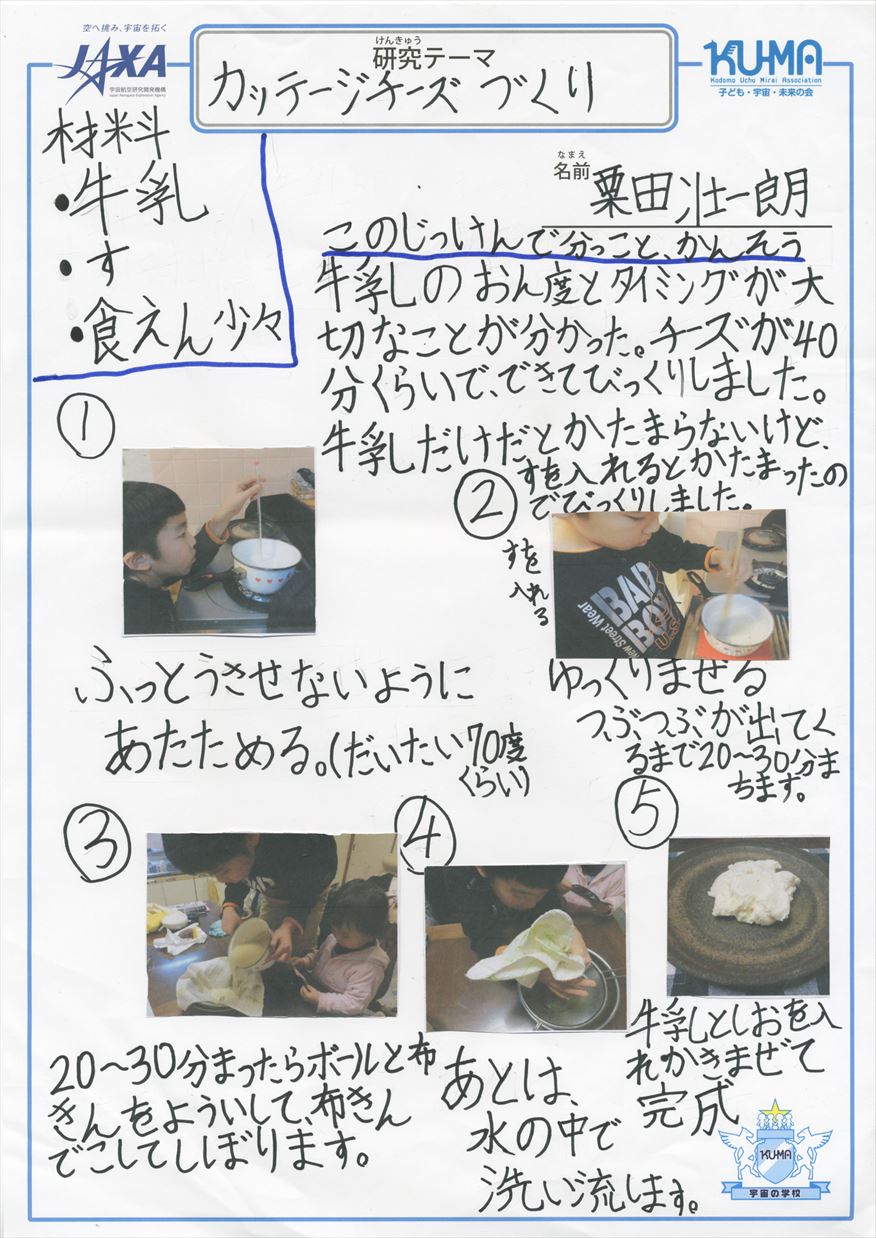 空へ挑み、宇宙を拓く
JAXA
宇宙航空研究開発機構
Japan Aerospace Exploration Agency
けんきゅう
研究テーマ
カッテージチーズ づくり
KU-MA
Kodomo Uchu Mirai Association
子ども・宇宙・未来の会
材料
・牛乳
・す
・食えん少々
なまえ
名前 粟田壮一朗
このじっけんで分っこと、かんそう
牛乳しのおん度とタイミングが大
切なことが分かった。チーズが40
分くらいで、できてびっくりしました。
牛乳だけだとかたまらないけど、
すを入れるとかたまったの
でびっくりしました。
①
ふっとうさせないように
あたためる。(だいたい70度
くらい)
②
すを
入れる
BAD
BOY
New Street Wear
ゆっくりまぜる
つぶつぶが出てく
るまで20〜30分ま
ちます。
③
20〜30分まったらボールと布
きんをよういして、布きん
でこしてしぼります。
④
あとは、
水の中で
洗い流します。
⑤
牛乳としおを入
れかきまぜて
完成
KU-MA
宇宙の学校